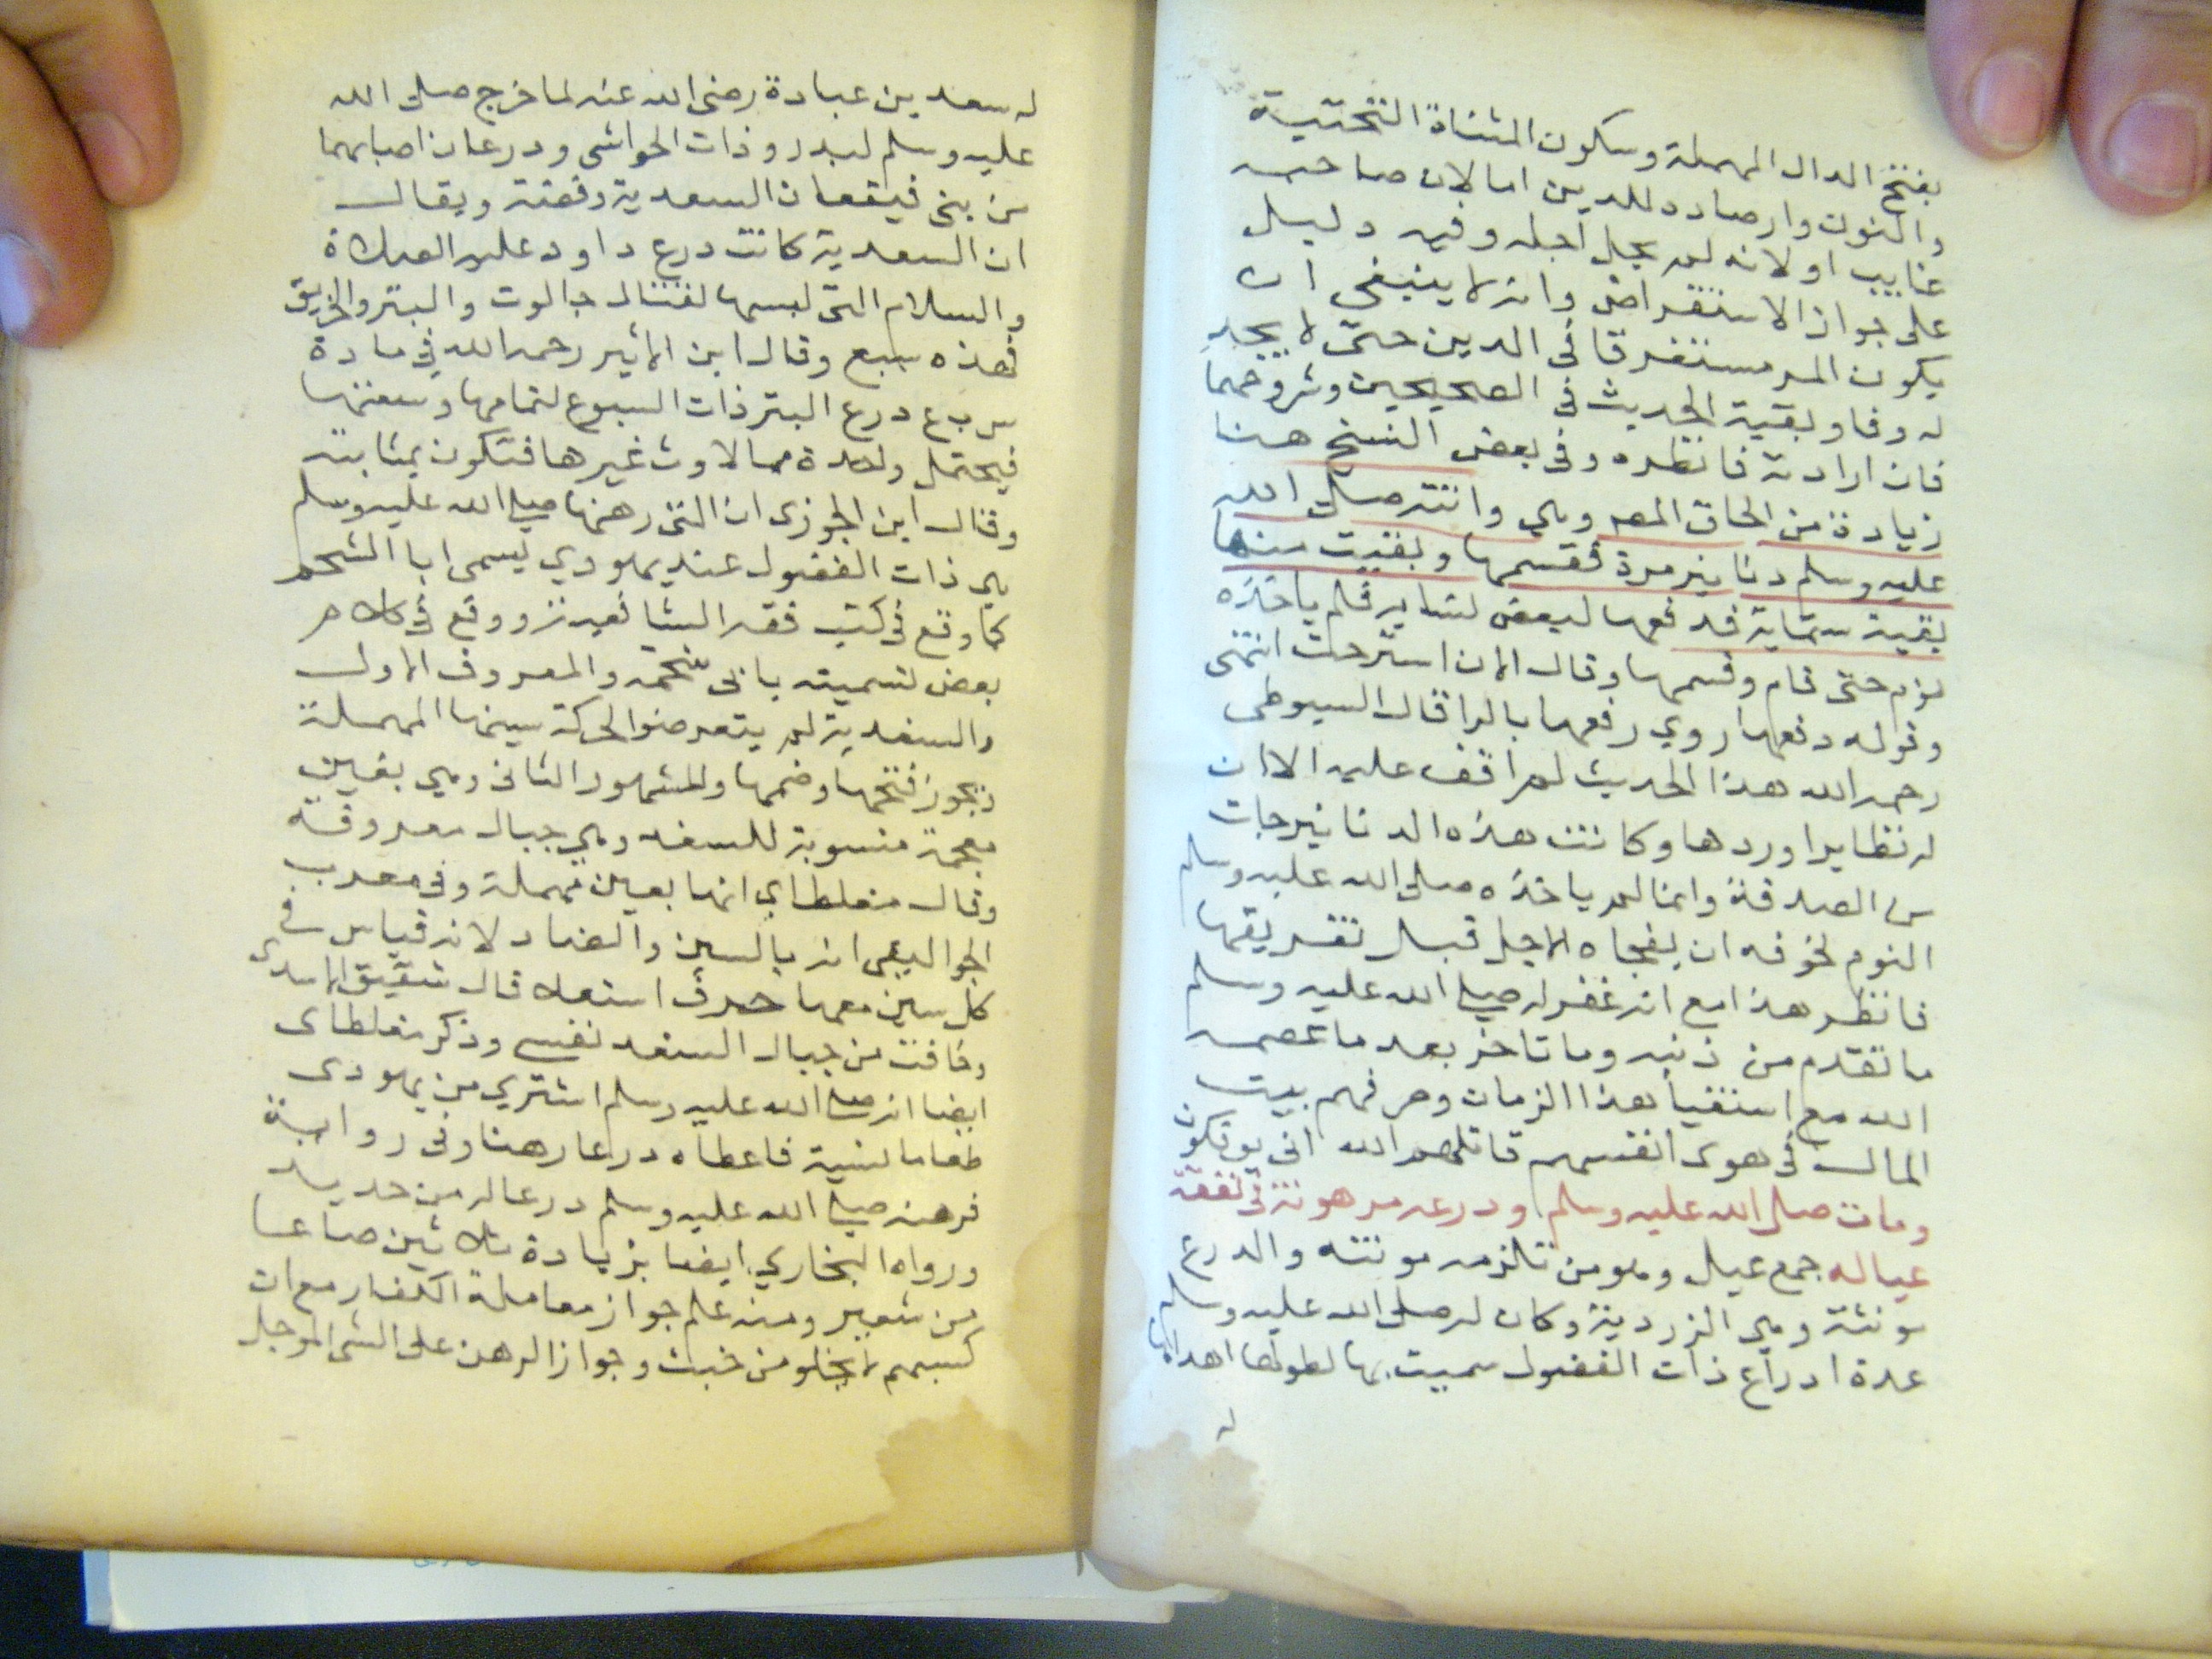 بفتح الدال المهملة وسكون المثناة التحتية
والنون وارصاده للدين اما لان صاحبه
غايب او لانه لم يحل اجله وفيه دليل
على جواز الاستقراض وانه لا ينبغى ان
يكون المر مستغرقا فى الدين حتى لا يجد
له وفا وبقية الحديث فى الصحيحين وشروحهما
فان ارادته فانظره وفى بعض النسخ هنا
زيادة من الحاق المص وهي واتته صلى الله
عليه وسلم دنانير مرة فقسمها وبقيت منها
بقية ستماية فدفعها لبعض نسايه فلم ياخذه
نوم حتى قام وقسمها وقال الان استرحت انتهى
وقوله دفعها روي رفعها بالرا قال السيوطى
رحمه الله هذا الحديث لم اقف عليه الا ان
له نظايرا وردها وكانت هذه الدنانير جات
من الصدقة وانما لم ياخذه صلى الله عليه وسلم
النوم لخوفه ان يفجاه الاجل قبل تفريقها
فانظر هذا مع انه غفر له صلى الله عليه وسلم
ما تقدم من ذنبه وما تاخر بعد ما عصمه
الله مع استقيا هذا الزمان وصرفهم بيت
المال فى هوى انفسهم قاتلهم الله انى يوفكون
ومات صلى الله عليه وسلم ودرعه مرهونة فى نفقة
عياله جمع عيل وهو من تلزمه مونته والدرع
مونثة وهى الزردية وكان له صلى الله عليه وسلم
عدة ادراع ذات الفضول سميت بها لطولها اهداها
له
له سعد بن عبادة رضى الله عنه لما خرج صلى الله
عليه وسلم لبدر وذات الحواشى ودرعان اصابهما
من بنى قيقعان السعدية وفضة ويقال
ان السعدية كانت درع داود عليه الصلاة
والسلام التى لبسها لقتال جالوت والبتر والخرنق
فهذه سبع وقال ابن الاثير رحمه الله فى مادة
س ب ع درع البتر ذات السبوع لتمامها وسعتها
فيحتمل واحدة مما لاوث غيرها فتكون بمثابته
وقال ابن الجوزى ان التى رهنها صلى الله عليه وسلم
هي ذات الفضول عند يهودي يسمى ابا الشحم
كما وقع فى كتب فقه الشافعية ووقع فى كلام
بعض تسميته بابى شحمة والمعروف الاول
والسغدية لم يتعرضوا لحركة سينها المهملة
ويجوز فتحها وضمها والمشهور الثانى وهي بغين
معجمة منسوبة للسغد وهي جبال معروفة
وقال مغلطاي انها بعين مهملة وفى معرب
الجواليقى انه بالسين والصاد لانه قياس فى
كل سين معها حرف استعلا قال شقيق الاسدى
وخافت من جبال السغد نفسي وذكر مغلطاى
ايضا انه صلى الله عليه وسلم اشتري من يهودى
طعاما لنسية فاعطاه درعا رهنا وفى رواية
فرهنه صلى الله عليه وسلم درعا له من حديد
ورواه البخاري ايضا بزيادة ثلاثين صاعا
من شعير ومنه علم جواز معاملة الكفار مع ان
كسبهم لا يخلو من خبث وجواز الرهن على الشى الموجل